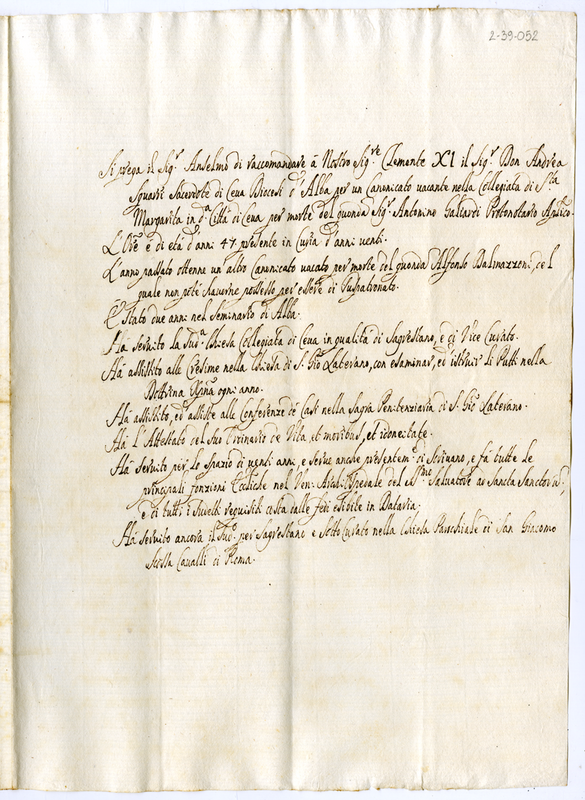 2-39-052
Si prega il Sig.r Anselmo di raccomandare à Nostro Sig.re Clemente XI il Sig.r Don Andrea
Sguari Sacerdote di Ceua Diocesi d'Alba per un Canonicato vacante nella Collegiata di S.ta
Margarita in d.a Città di Ceua per morte del quondam Sig.r Antonino Gallardi Protonotario Aplico.
L'Ore è di età d'anni 47 presente in Curia d'anni uenti.
L'anno passato ottenne un altro Canonicato uacato per morte del quondam Alfonso Balmazzeni, del
quale non potè hauerne possesso per essere di Juspatronato.
È stato due anni nel Seminario di Alba.
Hà seruito la sud.a Chiesa Collegiata di Ceua in qualità di Sagrestano, e di Vice Curato.
Hà assistito alle Cresime nella Chiesa di S. Gio Laterano, con esaminar, ed istruir li Putti nella
Dottrina Xpna ogni anno.
Hà assistito, ed assiste alle Conferenze de Casi nella Sagra Penitenziaria di S. Gio Laterano.
Hà l'Attestato del suo Ordinario de Vita, et moribus, et idoneitate.
Hà seruito per lo spazio di uenti anni, e serue anche presentem.e di Scriuano, e fà tutte le
principali fonzioni Ecclesiche nel Ven: Arcid: Ospedale del SS.mo Saluatore ad Sancta Sanctorum,
e di tutti i sudetti requisiti costa dalle fedi esibite in Dataria.
Hà seruito ancora il sud.o per Sagrestano e Sotto Curato nella Chiesa Parochiale di San Giacomo
Scossa Caualli di Roma.